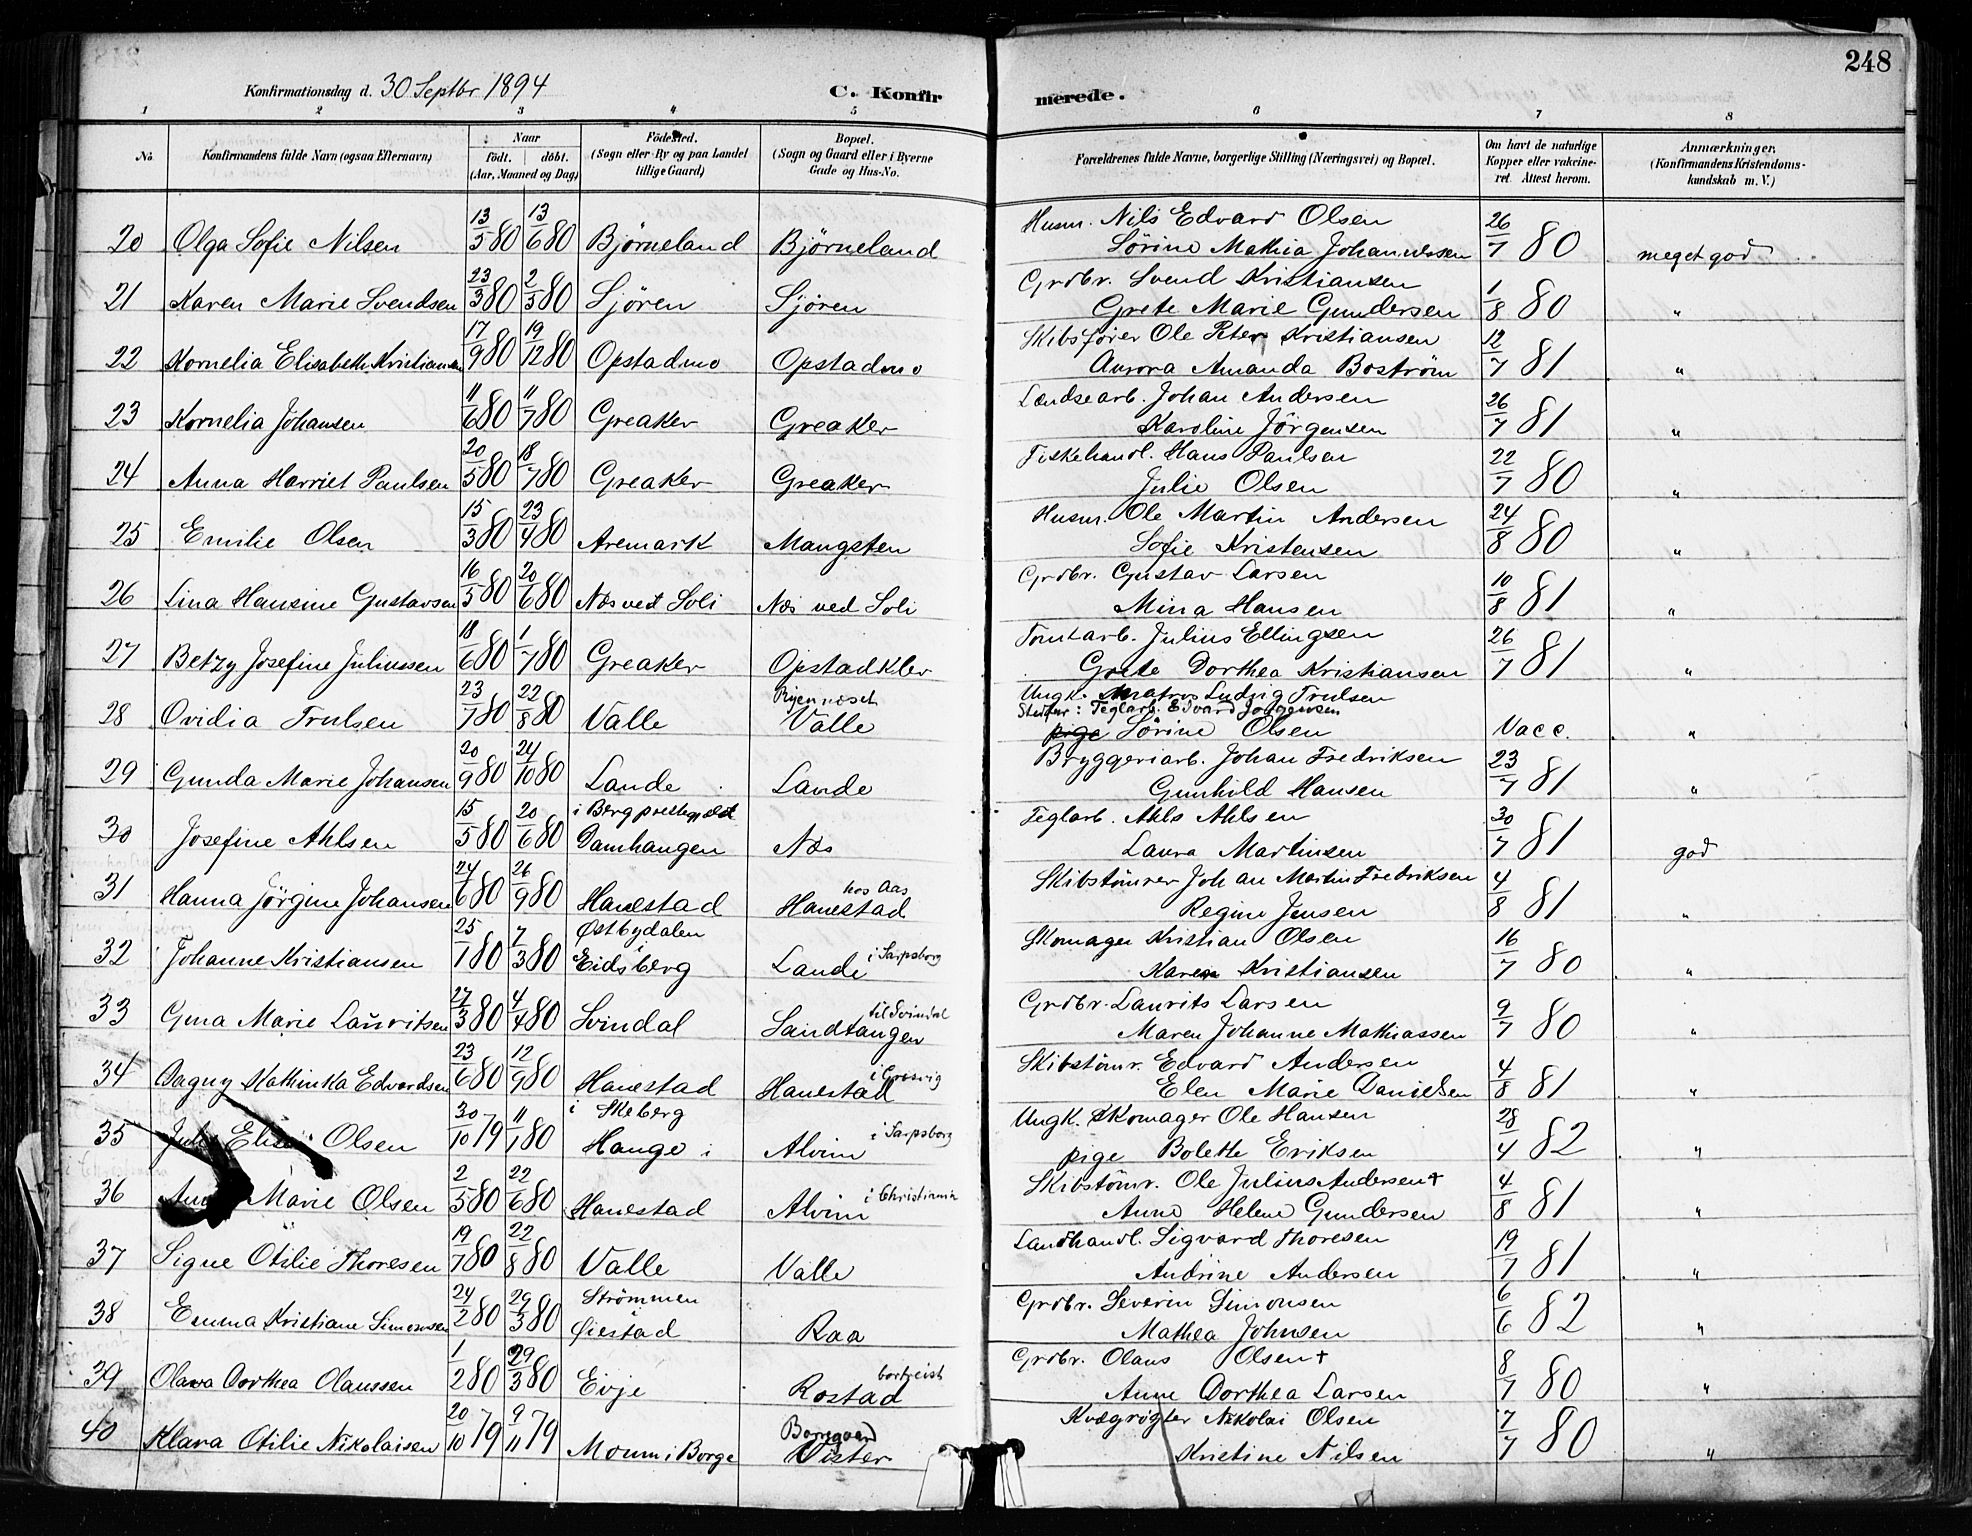 248
Konfirmationsdag d. 30 Septbr 1894 C. Konfirmerede.
1 2 3 4 5 6 7 8
No. Konfirmandens fulde Navn (ogsaa Efternavn) Naar født. døbt. (Aar, Maaned og Dag) Fødested. (Sogn eller By og paa Landet tillige Gaard) Bopæl. (Sogn og Gaard eller i Byerne Gade og Hus-No. Forældrenes fulde Navne, borgerlige Stilling (Næringsvei) og Bopæl. Om havt de naturlige Kopper eller vakcineret. Attest herom. Anmærkninger. (Konfirmandens Kristendomskundskab m. V.)
20 Olga Sofie Nilsen 13/5 80 13/6 80 Björneland Björneland Husm. Nils Edvard Olsen
Sörine Mathia Johannessen 26/7 80 meget god
21 Karen Marie Svendsen 23/3 80 2/5 80 Sjören Sjören Grdbr. Svend Kristiansen
Grete Marie Gundersen 1/8 80 "
22 Kornelia Elisabeth Kristiansen 17/9 80 19/12 80 Opstadmo Opstadmo Skibsfører Ole Peter Kristiansen
Aurora Amanda Boström 12/7 81 "
23 Kornelia Johansen 11/6 80 11/7 80 Greaker Greaker Lændsearb. Johan Andersen
Karoline Jörgensen 26/7 81 "
24 Anna Harriet Paulsen 20/5 80 18/7 80 Greaker Greaker Fiskehandl. Hans Paulsen
Julie Olsen 22/7 80 "
25 Emilie Olsen 15/3 80 23/4 80 Aremark Mangsten Husm. Ole Martin Andersen
Sofie Kristensen 24/8 80 "
26 Lina Hansine Gustavsen 16/5 80 20/6 80 Næs ved Soli Næs ved Soli Grdbr. Gustav Larsen
Mina Hansen 10/8 81 "
27 Betzy Josefine Juliussen 18/6 80 1/7 80 Greaker Opstadklev Tomtarb. Julius Ellingsen
Grete Dorthea Kristiansen 26/7 81 "
28 Ovidia Trulsen 23/7 80 22/8 80 Valle Valle Ungk. Matros Ludvig Trulsen
Stedfar: Teglarb. Edvard Jørgensen
pige Sörine Olsen Vacc. "
29 Gunda Marie Johansen 20/9 80 24/10 80 Lande Lande Bryggeriarb. Johan Fredriksen
Gunhild Hansen 23/7 81 "
i Berg præstegjæld
30 Josefine Ahlsen 15/5 80 20/6 80 Damhaugen Næs Teglarb. Ahls Ahlsen
Laura Martinsen 30/7 81 god
hos Aas
31 Hanna Jörgine Johansen 24/6 80 26/9 80 Hanestad Hanestad Skibstömrer Johan Martin Fredriksen
Regine Jensen 4/8 81 "
Østbydalen i
32 Johanne Kristiansen 25/1 80 7/3 80 Eidsberg Lande i Sarpsborg Skomager Kristian Olsen
Karen Kristiansen 16/7 80 "
til Svindal
33 Gina Marie Lauritsen 27/3 80 4/4 80 Svindal Sandtangen Grdbr. Laurits Larsen
Maren Johanne Mathiassen 9/7 80 "
i Gresvig
34 Dagny Kathinka Edvardsen 23/6 80 12/9 80 Hanestad Hanestad Skibstömr. Edvard Andersen
Elen Marie Danielsen 4/8 81 "
i Skeberg
35 Olsen 30/10 79 11/1 80 Hauge i Alvim i Sarpsborg Ungk. Skomager Ole Hansen
pige Bolette Eriksen 28/4 82 "
36 Marie Olsen 2/5 80 22/6 80 Hanestad Alvim i Christiania Skibstömr. Ole Julius Andersen +
Anne Helene Gundersen 4/8 81 "
37 Signe Otilie Thoresen 19/7 80 22/8 80 Valle Valle Landhandl. Sigvard Thoresen
Andrine Andersen 19/7 81 "
Strömmen i
38 Emma Kristiane Simonsen 24/2 80 29/3 80 Øiestad Raa Grdbr. Severin Simonsen
Mathea Johnsen 6/6 82 "
bortreist
39 Olava Dorthea Olaussen 1/2 80 29/3 80 Evje Rostad Grdbr. Olaus Olsen +
Anne Dorthea Larsen 8/7 80 "
Borregaard
40 Klara Otilie Nikolaisen 20/10 79 9/11 79 Moum i Borge Vister Kvægrögter Nikolai Olsen
Kristine Nilsen 7/7 80 "